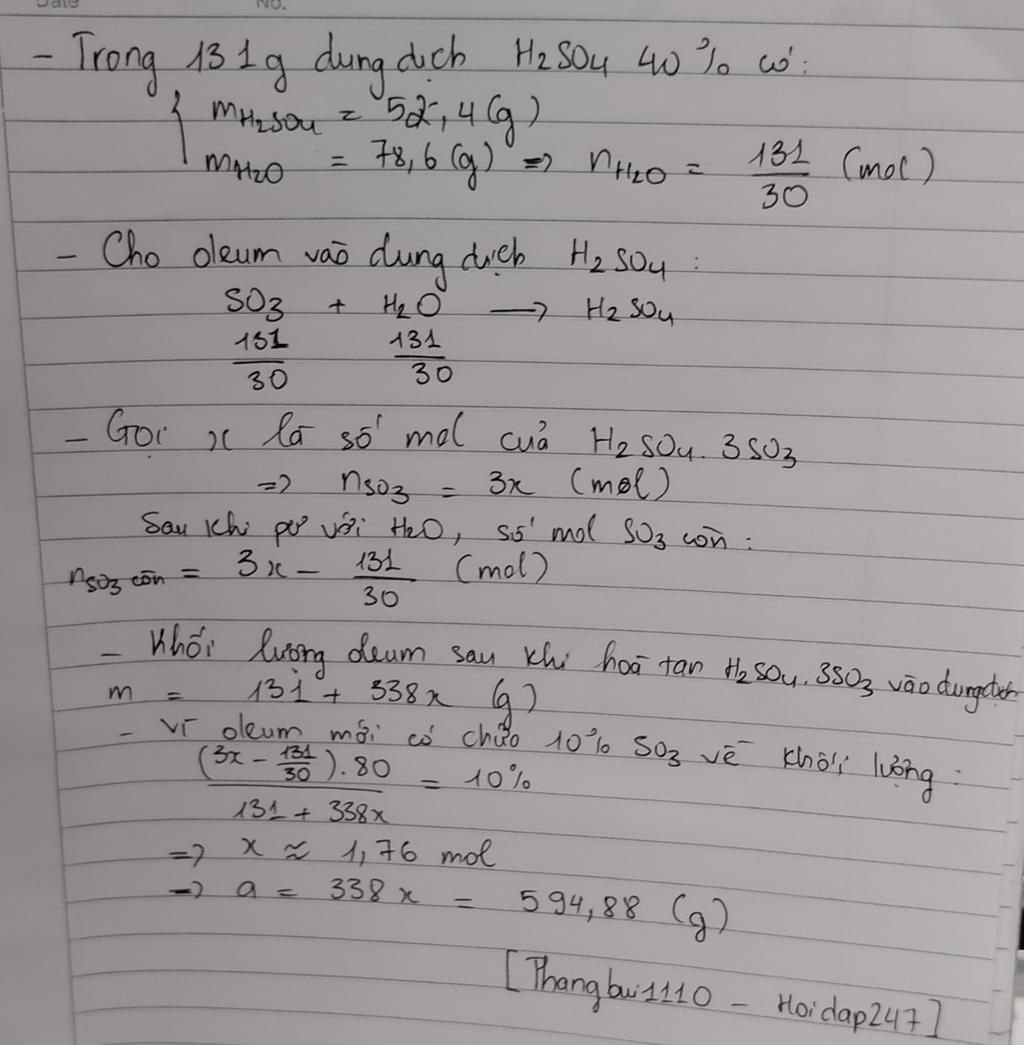 Date No.
- Trong 131g dung dịch H2SO4 40% có:
{ mH2SO4 = 52,4 (g)
mH2O = 78,6 (g) => nH2O = 131/30 (mol)
- Cho oleum vào dung dịch H2SO4 :
SO3 + H2O → H2SO4
131/30 131/30
- Gọi x là số mol của H2SO4.3SO3
=> nSO3 = 3x (mol)
Sau khi pư với H2O, số mol SO3 còn :
nSO3 còn = 3x - 131/30 (mol)
- Khối lượng oleum sau khi hoà tan H2SO4.3SO3 vào dung dịch
m = 131 + 338x (g)
- Vì oleum mới có chứa 10% SO3 về khối lượng :
(3x - 131/30).80 / 131 + 338x = 10%
=> x ≈ 1,76 mol
=> a = 338x = 594,88 (g)
[Thangbui1110 - Hoidap247]